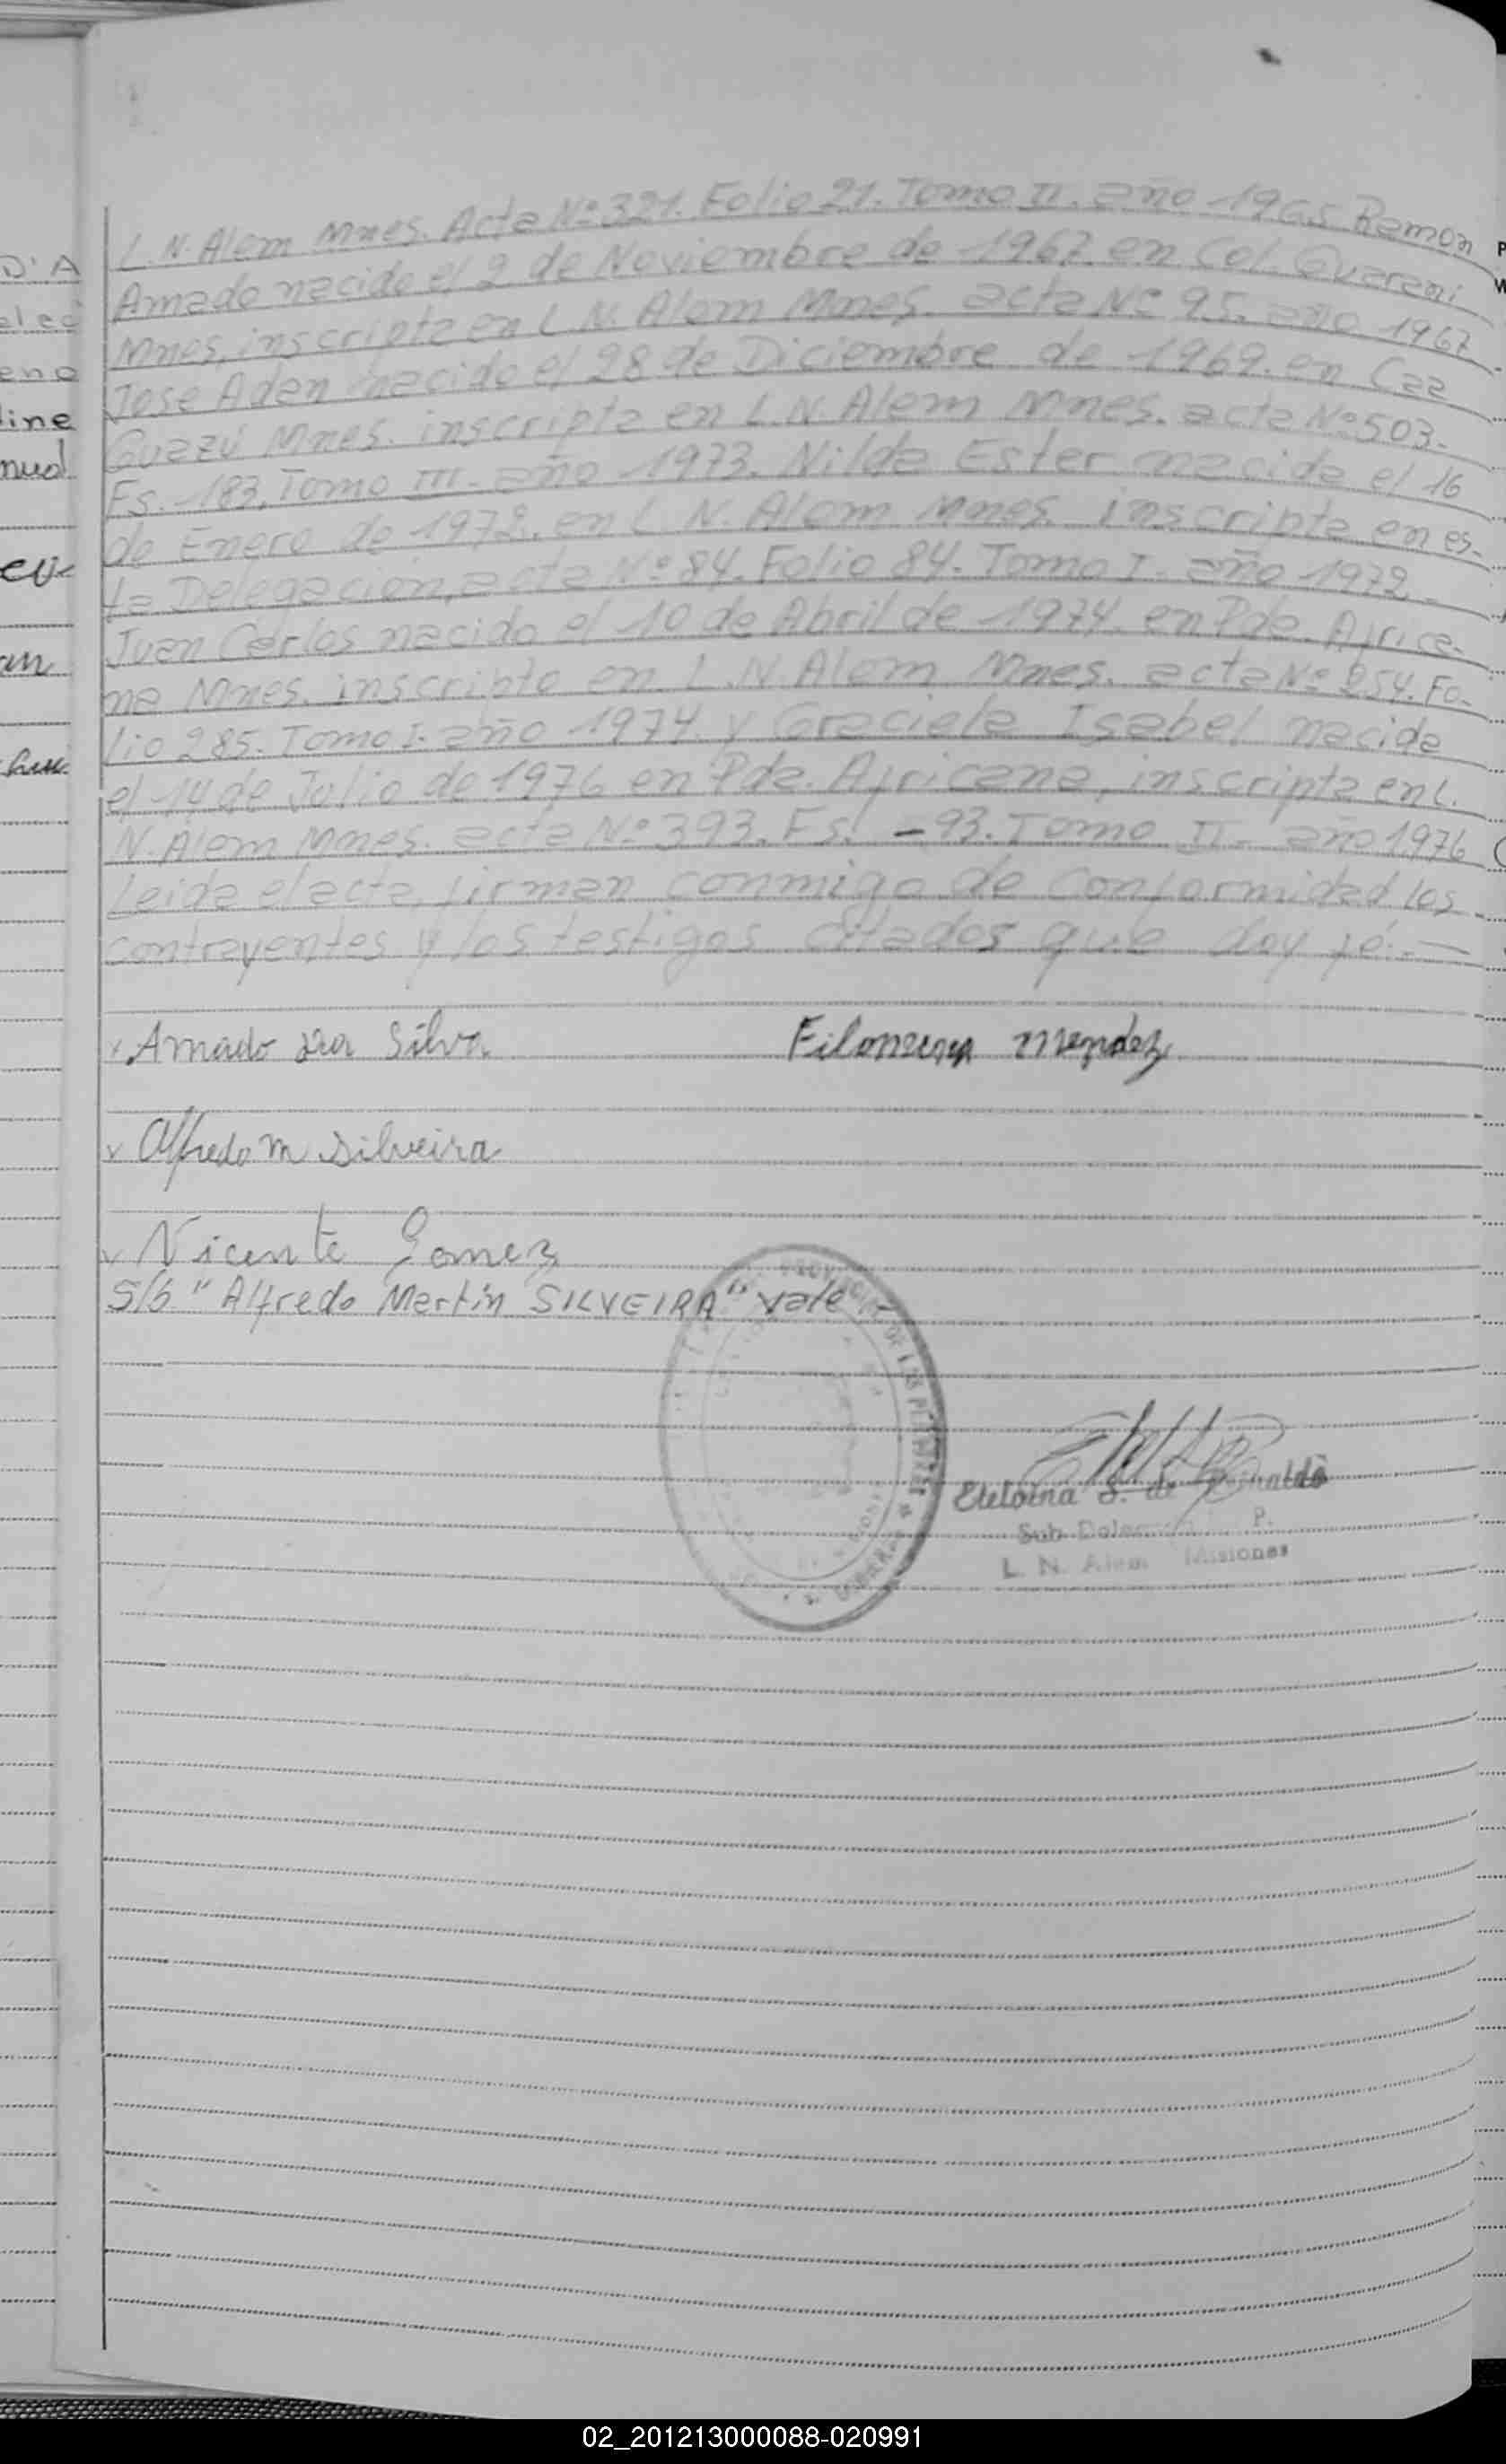 L. N. Alem Mnes. Acta Nº 321. Folio 21. Tomo II. año 1965 Ramon
Amado nacido el 2 de Noviembre de 1967. en Col. Guarani
Mnes, inscripta en L. N. Alem Mnes. acta Nº 95. año 1967
Jose Aden nacido el 28 de Diciembre de 1969. en Caa
Guazú Mnes. inscripta en L. N. Alem Mnes. acta Nº 503.
Fs. 183. Tomo III. año 1973. Nilda Ester nacida el 16
de Enero de 1972. en L. N. Alem Mnes. inscripta en es-
ta Delegacion, acta Nº 84. Folio 84. Tomo I. año 1972.
Juan Carlos nacido el 10 de Abril de 1974. en Pda. Africa-
na Mnes. inscripto en L. N. Alem Mnes. acta Nº 254. Fo-
lio 285. Tomo I. año 1974. y Graciela Isabel nacida
el 14 de Julio de 1976 en Pda. Africana, inscripta en L.
N. Alem Mnes. acta Nº 393. Fs. -93. Tomo II- año 1976
Leida el acta, firman conmigo de Conformidad los
contrayentes y los testigos citados que doy fé.—
x Amado da Silva Filomena Mendez
v Alfredo M Silveira
v Vicente Gomez
S/b "Alfredo Martin SILVEIRA" vale -
Eteloina S. de Reinaldo
Sub P.
L. N. Alem Misiones
02_201213000088-020991